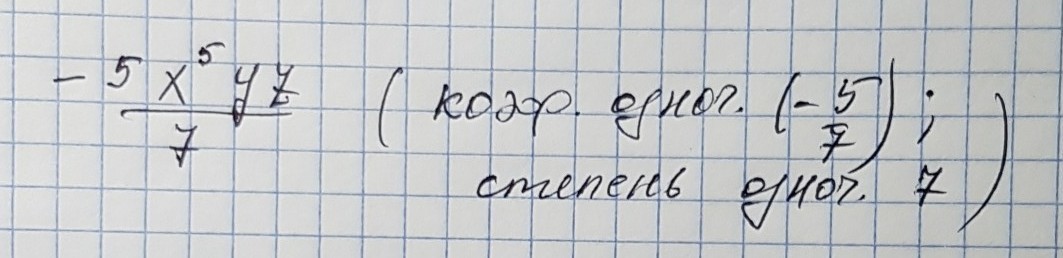 - 5x⁵yz / 7 ( коэф. одноч. (- 5/7) ;
степень одноч. 7 )